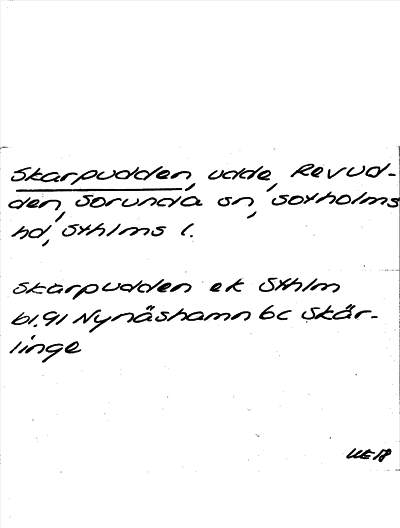 Skarpudden, udde, Revud-
den, Sorunda sn, Sotholms
hd, Sthlms l.
Skarpudden ek Sthlm
bl.91 Nynäshamn bc Skär-
linge